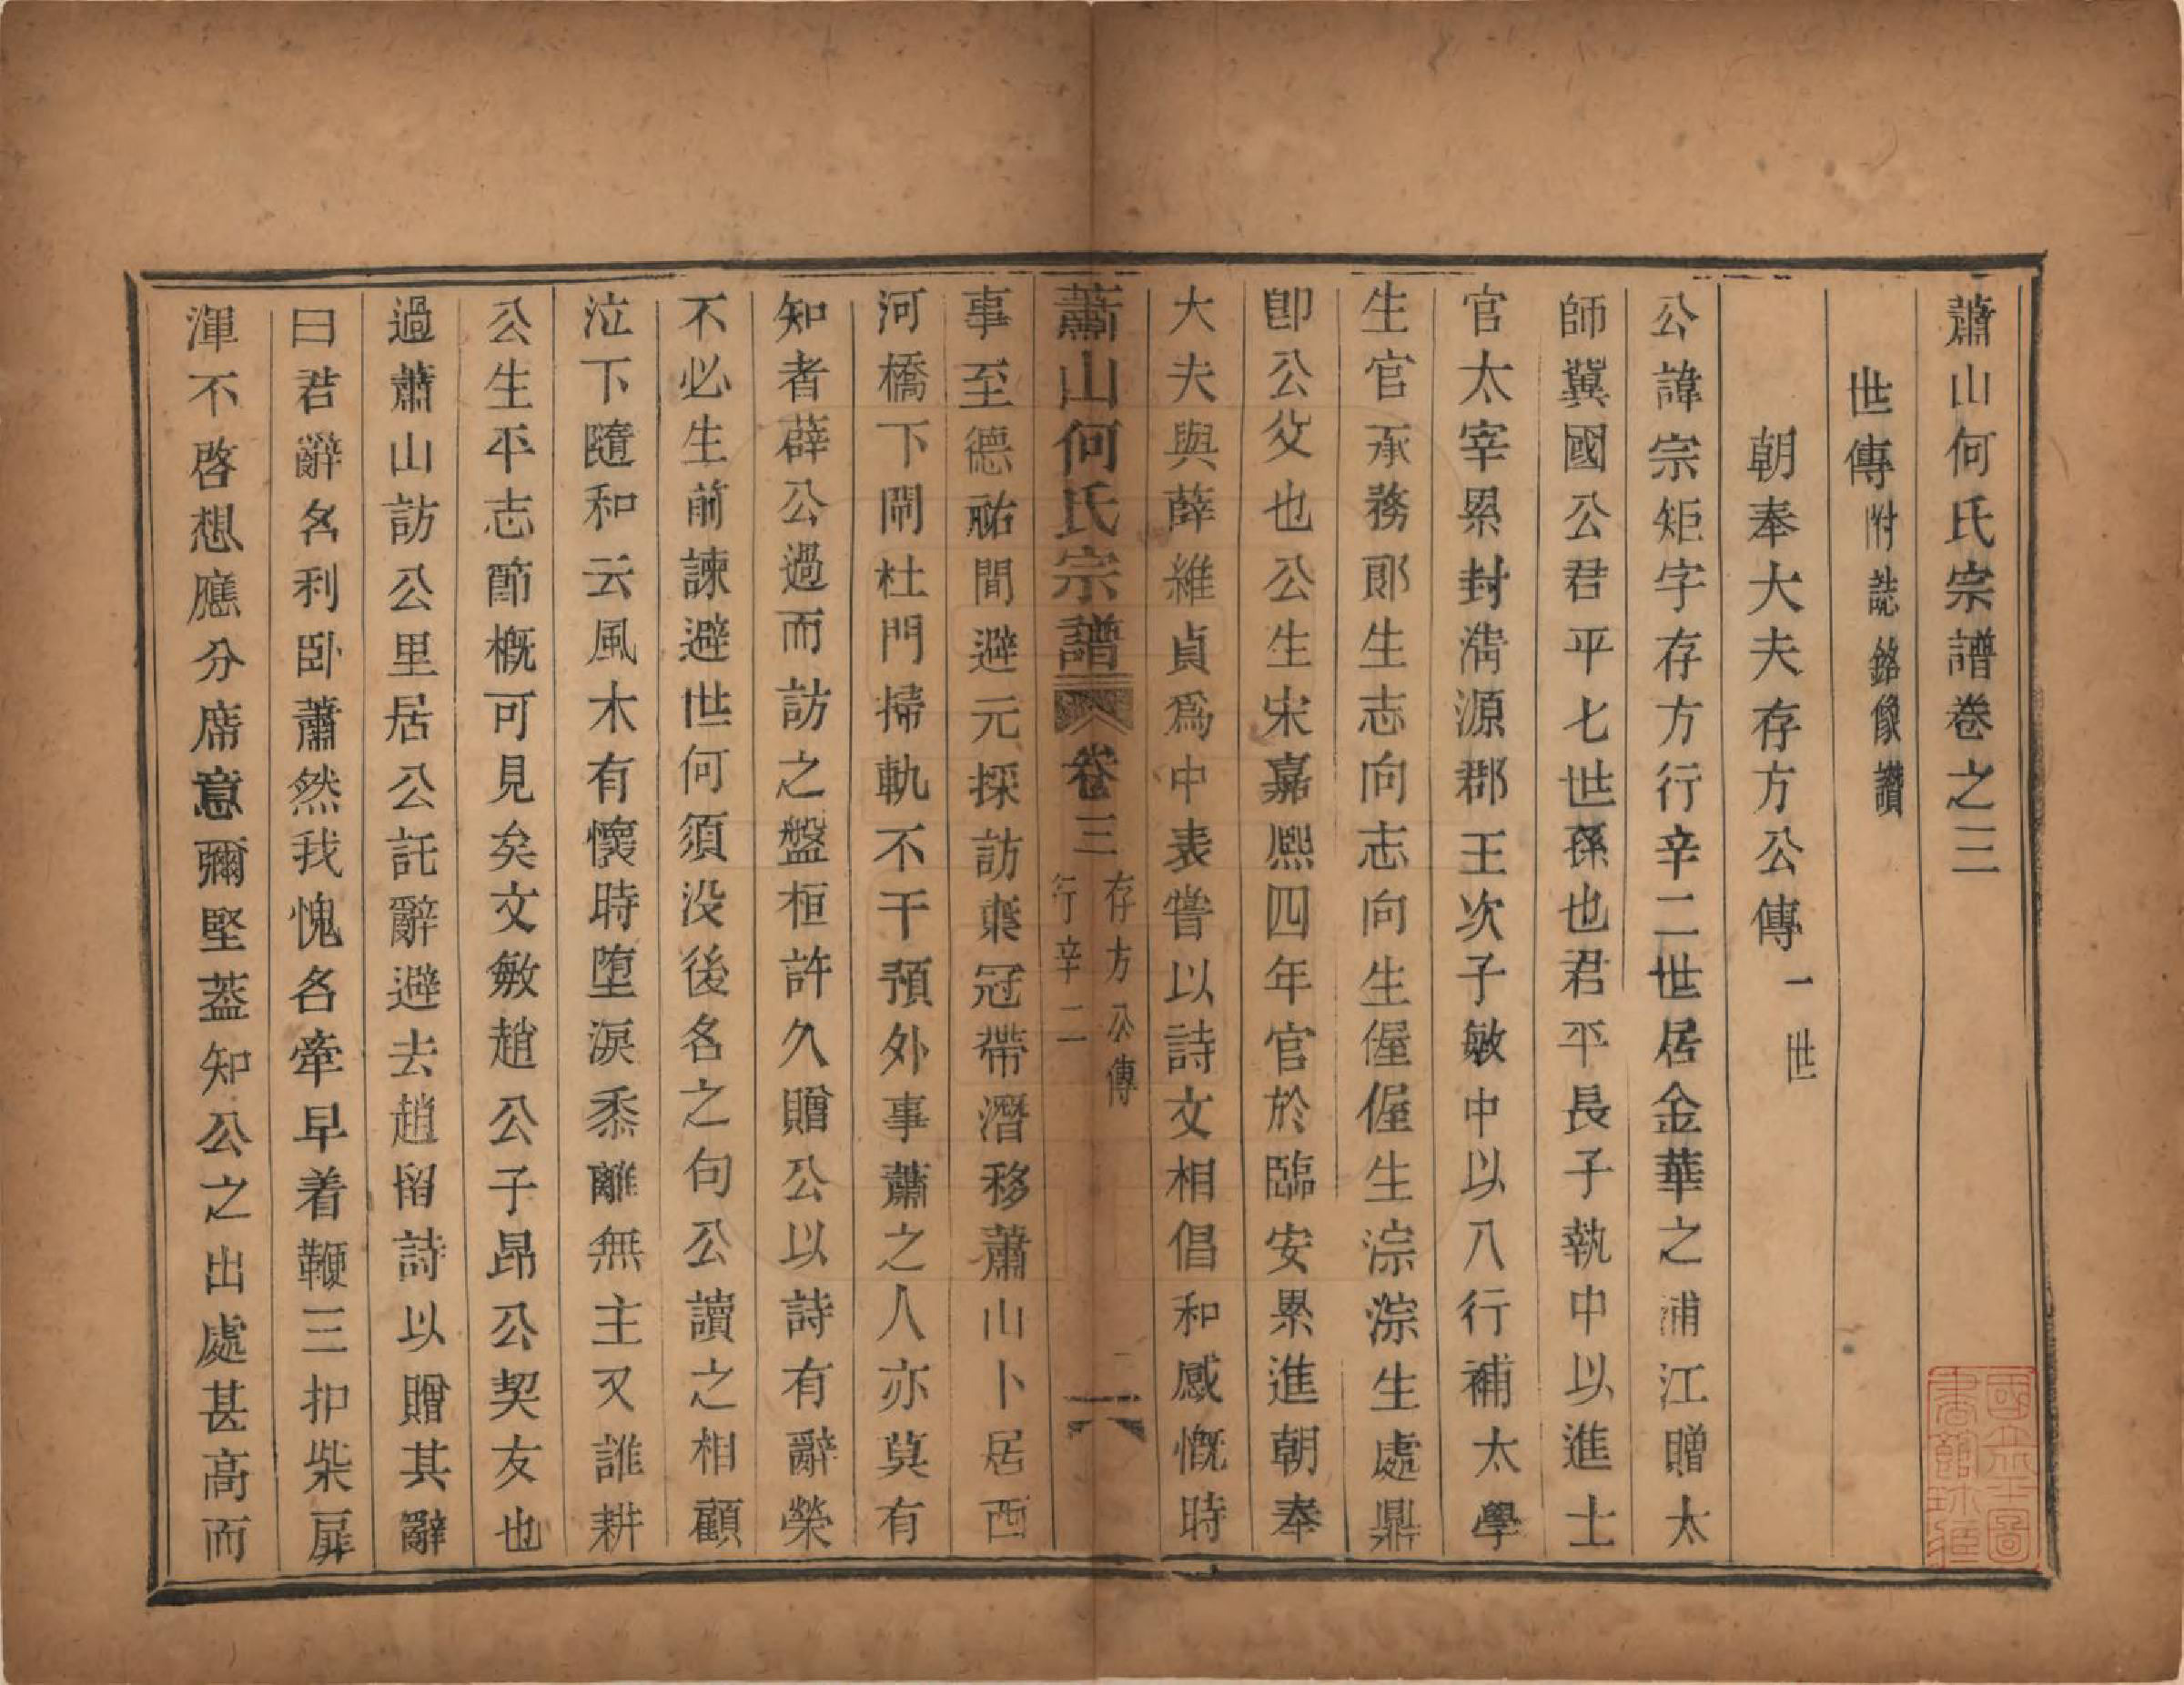 蕭山何氏宗譜卷之三
世傳附誌銘像讚
朝奉大夫存方公傳一世
公諱宗矩字存方行辛二世居金華之浦江贈太
師冀國公君平七世孫也君平長子執中以進士
官太宰累封清源郡王次子敏中以八行補太學
生官承務郎生志向志向生偓偓生淙淙生處鼎
卽公父也公生宋嘉熙四年官於臨安累進朝奉
大夫與薛維貞爲中表嘗以詩文相倡和感慨時
蕭山何氏宗譜
卷三
存方公傳
行辛二
一
事至德祐間避元採訪棄冠帶潛移蕭山卜居西
河橋下閈杜門掃軌不干預外事蕭之人亦莫有
知者薜公過而訪之盤桓許久贈公以詩有辭榮
不必生前諫避世何須没後名之句公讀之相顧
泣下隨和云風木有懷時堕淚黍離無主又誰耕
公生平志節概可見矣文敏趙公子昂公契友也
過蕭山訪公里居公託辭避去趙留詩以贈其辭
曰君辭名利卧蕭然我愧名牽早着鞭三扣柴扉
渾不啓想應分席意彌堅葢知公之出處甚高而
國立北平圖
書館珍藏